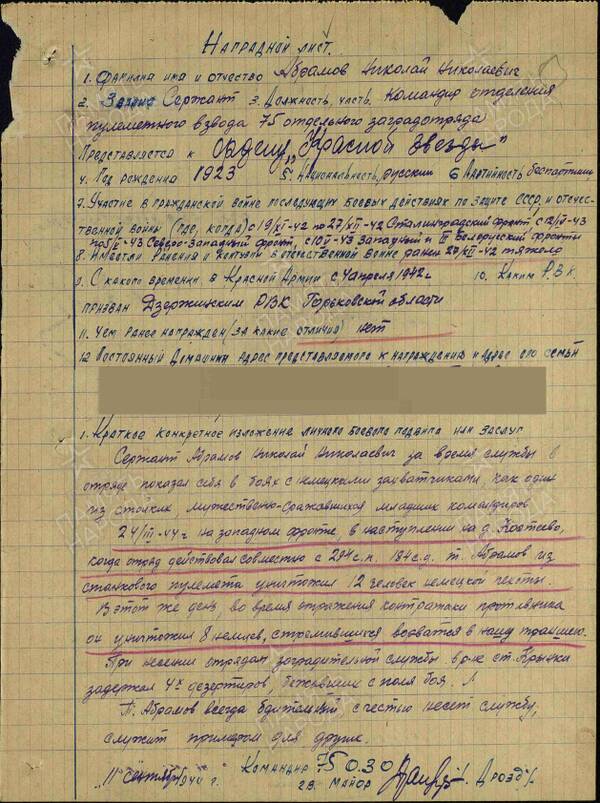 Наградной лист.
1. Фамилия имя и отчество Абрамов Николай Николаевич
2. Звание Сержант 3. Должность, часть. Командир отделения
пулеметного взвода 75 отдельного заградотряда
Представляется к ордену „Красной Звезды"
4. Год рождения 1923 5. Национальность, русский 6 Партийность беспартийный
7. Участие в гражданской войне последующих боевых действиях по защите СССР и отечес-
твенной войны (где, когда) с 19/XI-42 по 27/XII-42 Сталинградский фронт с 12/IV-43
Северо-Западный фронт, Западный и III Белорусский фронты
8. Имеет ли ранения и контузии в отечественной войне ранен 27/XII-42 тяжело
9. С какого времени в Красной Армии с 4 апреля 1942 г 10. Каким Р.В.К.
призван Дзержинским РВК Горьковской области
11. Чем ранее награжден (за какие отличия) нет
12 Постоянный домашний адрес представляемого к награждению и адрес его семьи
1. Краткое конкретное изложение личного боевого подвига или заслуг
Сержант Абрамов Николай Николаевич за время службы в
отряде показал себя в боях с немецкими захватчиками, как один
из стойких мужественно-сражавшихся младших командиров
24/III-44 г на западном фронте, в наступлении на д.
когда отряд действовал совместно с 294 с.п. 184 с.д. т. Абрамов из
станкового пулемета уничтожил 12 человек немецкой пехоты.
В этот же день во время отражения контратаки противника
он уничтожил 8 немцев, стремившихся ворваться в нашу траншею.
При несении отрядом заградительной службы в р-не ст. Крынки
задержал 4х дезертиров, бежавших с поля боя.
Т. Абрамов всегда бдительный, с честью несет службу,
служит примером для других.
Командир 75 О.З.О
„11" сентября 1944 г. гв. майор /. Дрозд /.
ПАМЯТЬ НАРОДА